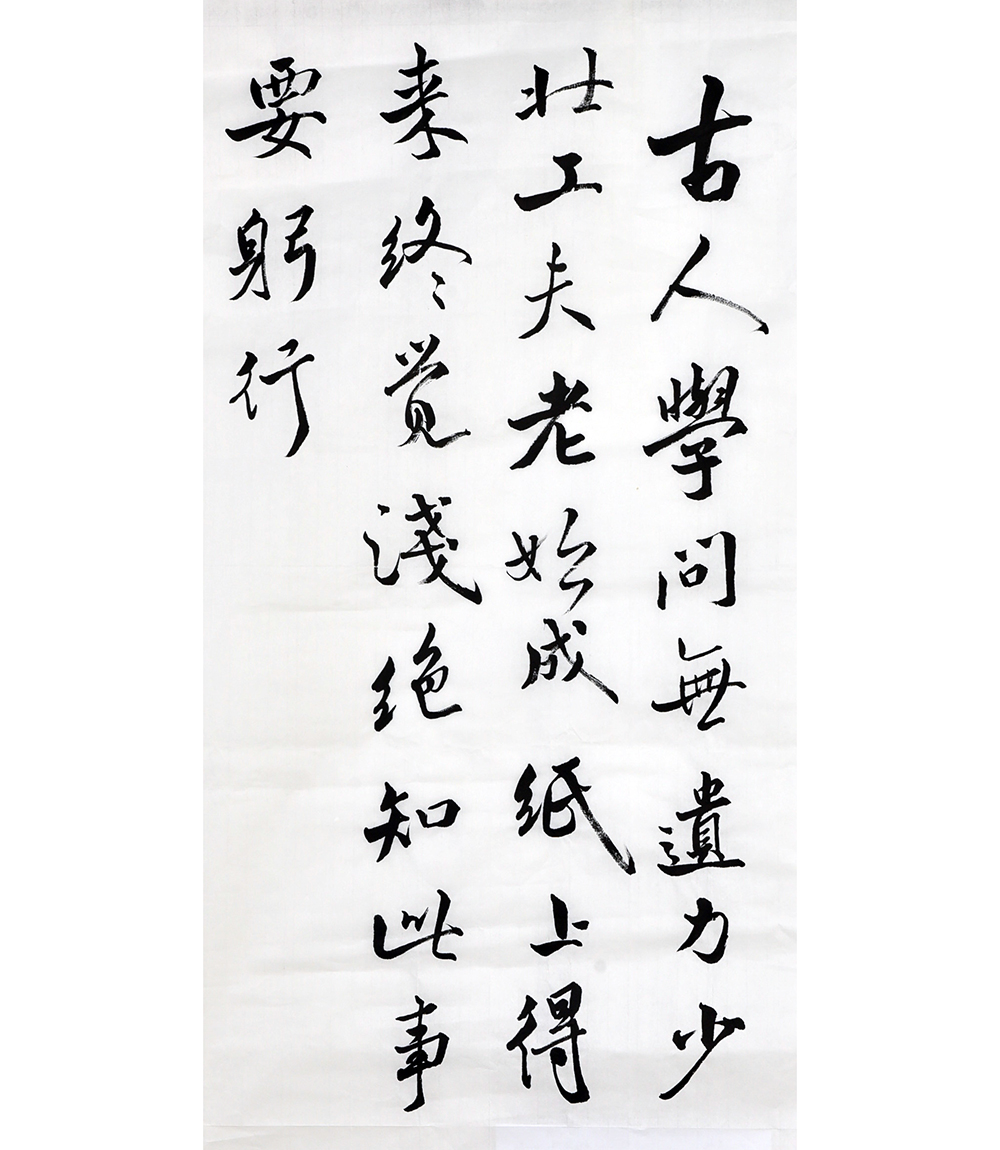 古人學問無遺力少
壯工夫老始成紙上得
来终觉淺绝知此事
要躬行